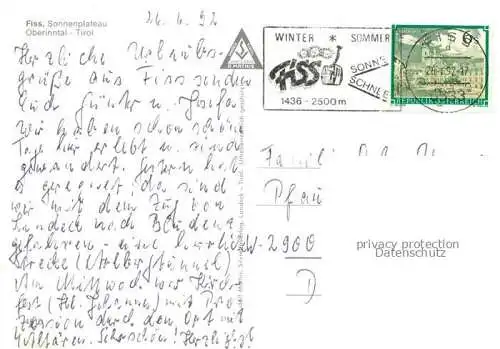 Fiss, Sonnenplateau
Oberinntal - Tirol
26.6.92
Herzliche Urlaubs-
grüße aus Fiss senden
Euch Günter u. Josefa
wir haben schon schöne
Tage hier erlebt u. sind
gewandert. Gestern hat
es geregnet, da sind
wir mit dem Zug von
Landeck nach Bludenz
gefahren - eine herrliche
Strecke (Arlbergtunnel)
Am Mittwoch war Kirch-
fest (Hl. Johannes) mit Pro-
zession durch den Ort mit
Sehr schön! Herzlichst
WINTER * SOMMER
FISS
SONNE
SCHNEE
1436-2500m
REPUBLIK ÖSTERREICH
Pfau
W-2900
D
privacy protection
Datenschutz